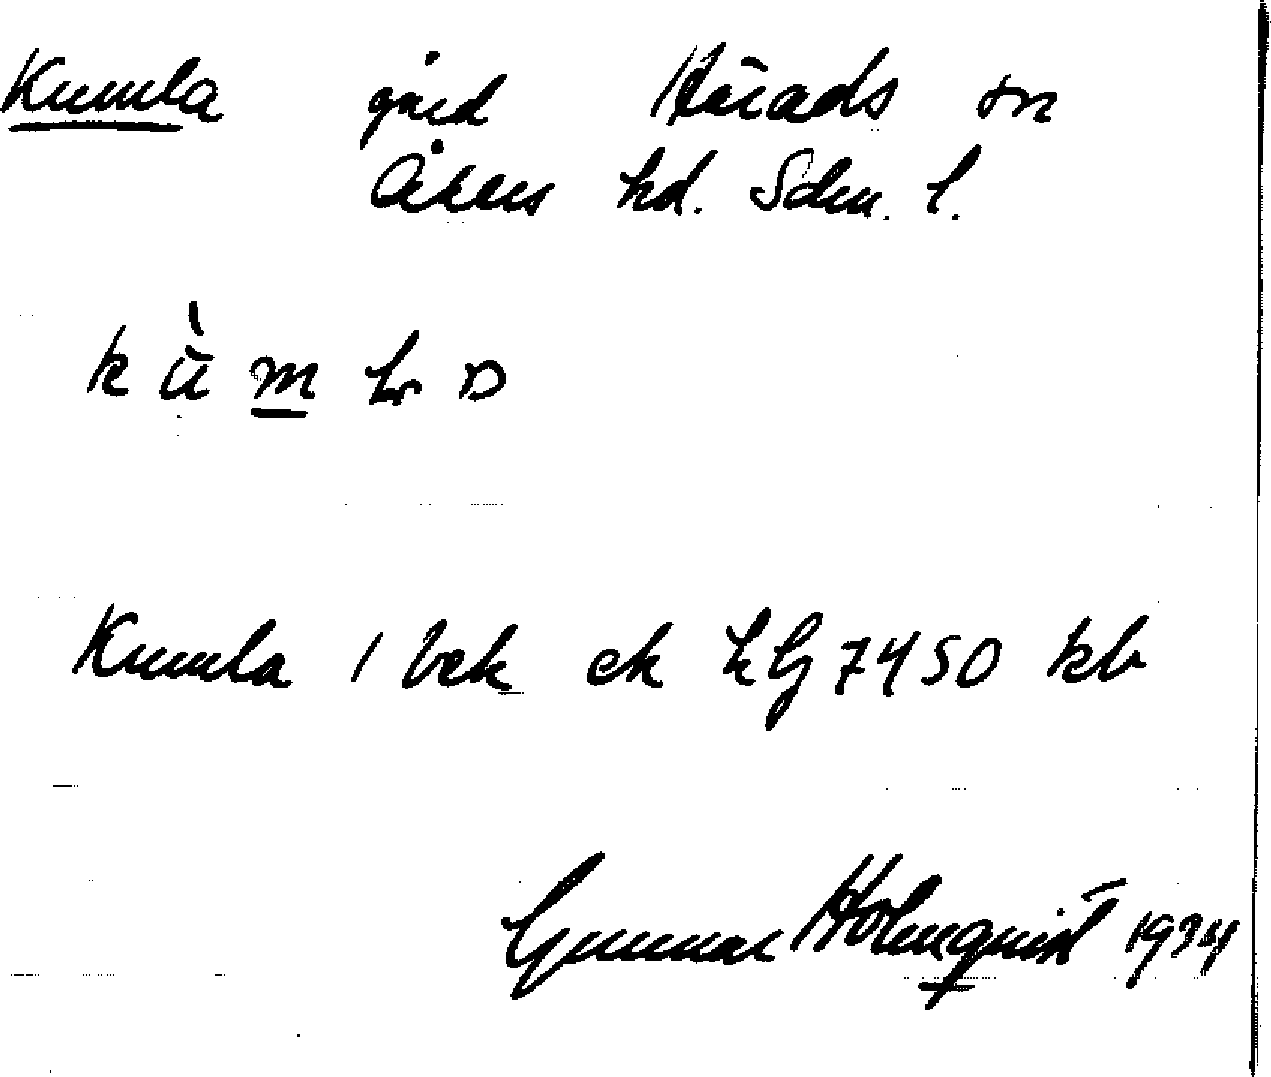 Kumla gård Härads sn
Åkers hd. Sdm. l.
Kumla 1 bek ek hG 7450 kb
Gunnar Holmquist 1934